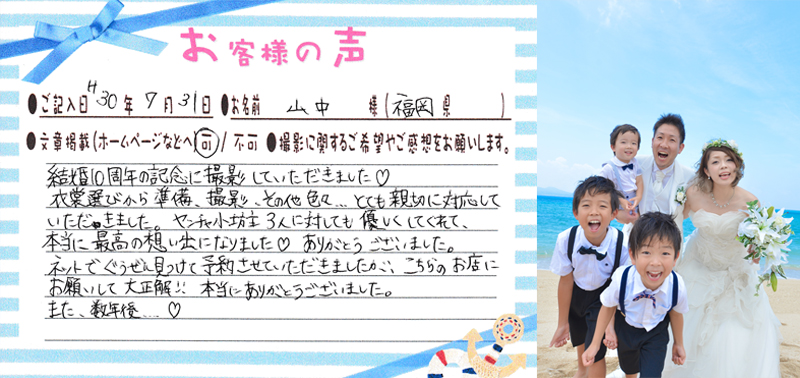 お客様の声
●ご記入日 H30年7月31日 ●お名前 山中 様(福岡県)
●文章掲載(ホームページなどへ 可 / 不可 ●撮影に関するご希望やご感想をお願いします。
結婚10周年の記念に撮影していただきました♡
衣裳選びから準備、撮影、その他色々…とても親切に対応して
いただきました。ヤンチャ小坊主3人に対しても優しくしてくれて、
本当に最高の想い出になりました♡ ありがとうございました。
ネットでぐうぜん見つけて予約させていただきましたが、こちらのお店に
お願いして大正解!! 本当にありがとうございました。
また、数年後…♡